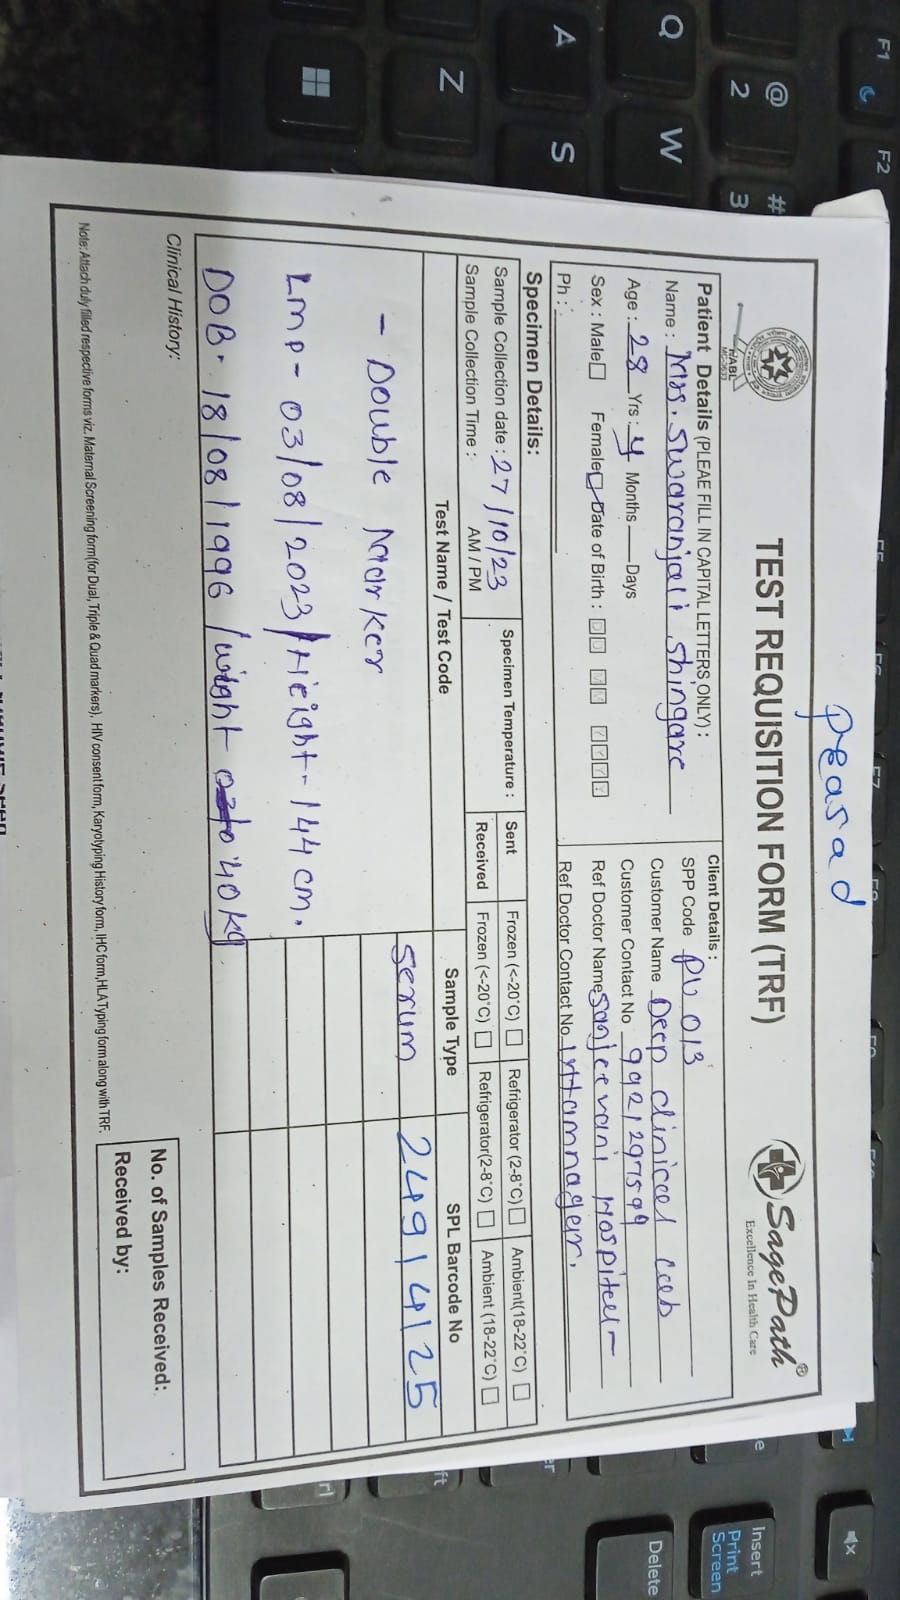 Prasad
TEST REQUISITION FORM (TRF)
NABL
SagePath®
Excellence In Health Care
Patient Details (PLEAE FILL IN CAPITAL LETTERS ONLY) :
Name : Mrs. Swaranjali Shingare
Age : 28 Yrs : 4 Months — Days
Sex : Male Female Date of Birth : D D M M Y Y Y Y
Ph :
Client Details :
SPP Code PU 013
Customer Name Deep clinical Lab
Customer Contact No 9921297599
Ref Doctor Name Sanjeevani Hospital-
Ref Doctor Contact No Uttamnagar.
Specimen Details:
Sample Collection date : 27/10/23
Sample Collection Time : AM / PM
Specimen Temperature :
Sent Frozen (<-20°C) Refrigerator (2-8°C) Ambient(18-22°C)
Received Frozen (<-20°C) Refrigerator(2-8°C) Ambient (18-22°C)
Test Name / Test Code Sample Type SPL Barcode No
- Double Marker serum 24914125
Lmp - 03/08/2023/Height - 144 cm.
DOB - 18/08/1996 /wight 40 kg.
Clinical History:
No. of Samples Received:
Received by:
Note: Attach duly filled respective forms viz. Maternal Screening form(for Dual, Triple & Quad markers), HIV consent form, Karyolyping History form, IHC form, HLA Typing form along with TRF.
F1
F2
@
2
#
3
Q
W
A
S
Z
Insert
Print
Screen
Delete